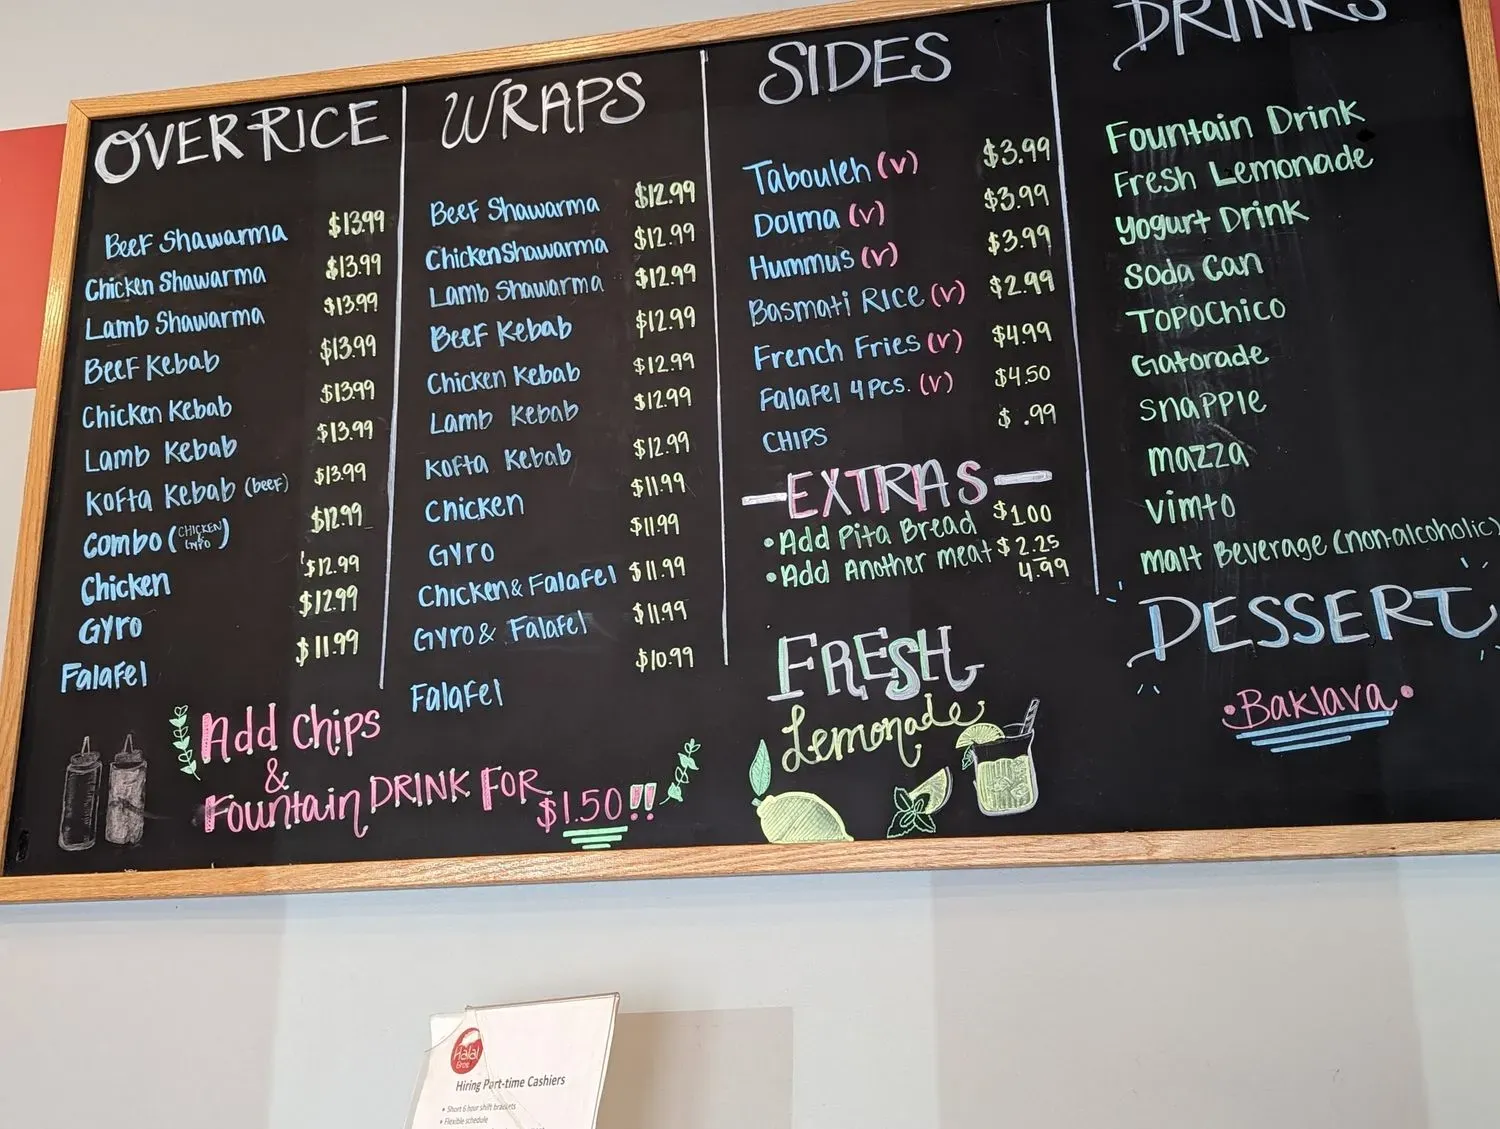 OVER RICE
Beef Shawarma $13.99
Chicken Shawarma $13.99
Lamb Shawarma $13.99
Beef Kebab $13.99
Chicken Kebab $13.99
Lamb Kebab $13.99
Kofta Kebab (beef) $13.99
Combo (CHICKEN & GYRO) $12.99
Chicken $12.99
Gyro $12.99
Falafel $11.99
WRAPS
Beef Shawarma $12.99
Chicken Shawarma $12.99
Lamb Shawarma $12.99
Beef Kebab $12.99
Chicken Kebab $12.99
Lamb Kebab $12.99
Kofta Kebab $12.99
Chicken $11.99
Gyro $11.99
Chicken & Falafel $11.99
Gyro & Falafel $11.99
Falafel $10.99
Add Chips
&
Fountain DRINK FOR $1.50!!
SIDES
Tabouleh (v) $3.99
Dolma (v) $3.99
Hummus (v) $3.99
Basmati Rice (v) $2.99
French Fries (v) $4.99
Falafel 4pcs. (v) $4.50
CHIPS $ .99
EXTRAS
• Add Pita Bread $1.00
• Add Another meat $2.25
4.99
FRESH
Lemonade
DRINKS
Fountain Drink
Fresh Lemonade
Yogurt Drink
Soda Can
TopoChico
Gatorade
Snapple
Mazza
Vimto
Malt Beverage (non-alcoholic)
DESSERT
• Baklava •
Halal
Bros
Hiring Part-time Cashiers
• Short 6 hour shift brackets
• Flexible schedule